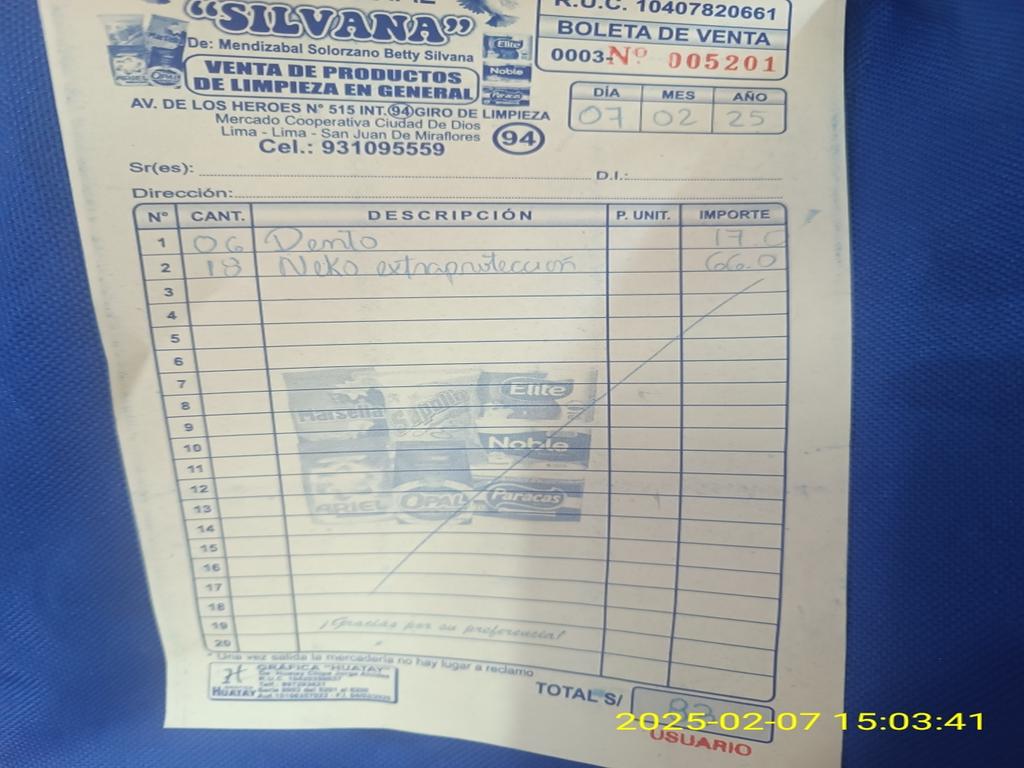 "SILVANA"
De: Mendizabal Solorzano Betty Silvana
VENTA DE PRODUCTOS
DE LIMPIEZA EN GENERAL
AV. DE LOS HEROES N° 515 INT. 94 GIRO DE LIMPIEZA
Mercado Cooperativa Ciudad De Dios
Lima - Lima - San Juan De Miraflores
Cel.: 931095559
94
R.U.C. 10407820661
BOLETA DE VENTA
0003-Nº 005201
DÍA MES AÑO
07 02 25
Elite
Noble
OPAL
Sr(es): D.I.:
Dirección:
N° CANT. DESCRIPCIÓN P. UNIT. IMPORTE
1 06 Dento 17.0
2 18 Neko extraprotección 66.0
3
4
5
6
7
8
9
10
11
12
13
14
15
16
17
18
19
20
Marsella Sapolio Elite
Noble
ARIEL OPAL Paracas
¡Gracias por su preferencia!
* Una vez salida la mercadería no hay lugar a reclamo
GRÁFICA "HUATAY"
HUATAY
TOTAL S/ 83
USUARIO
2025-02-07 15:03:41